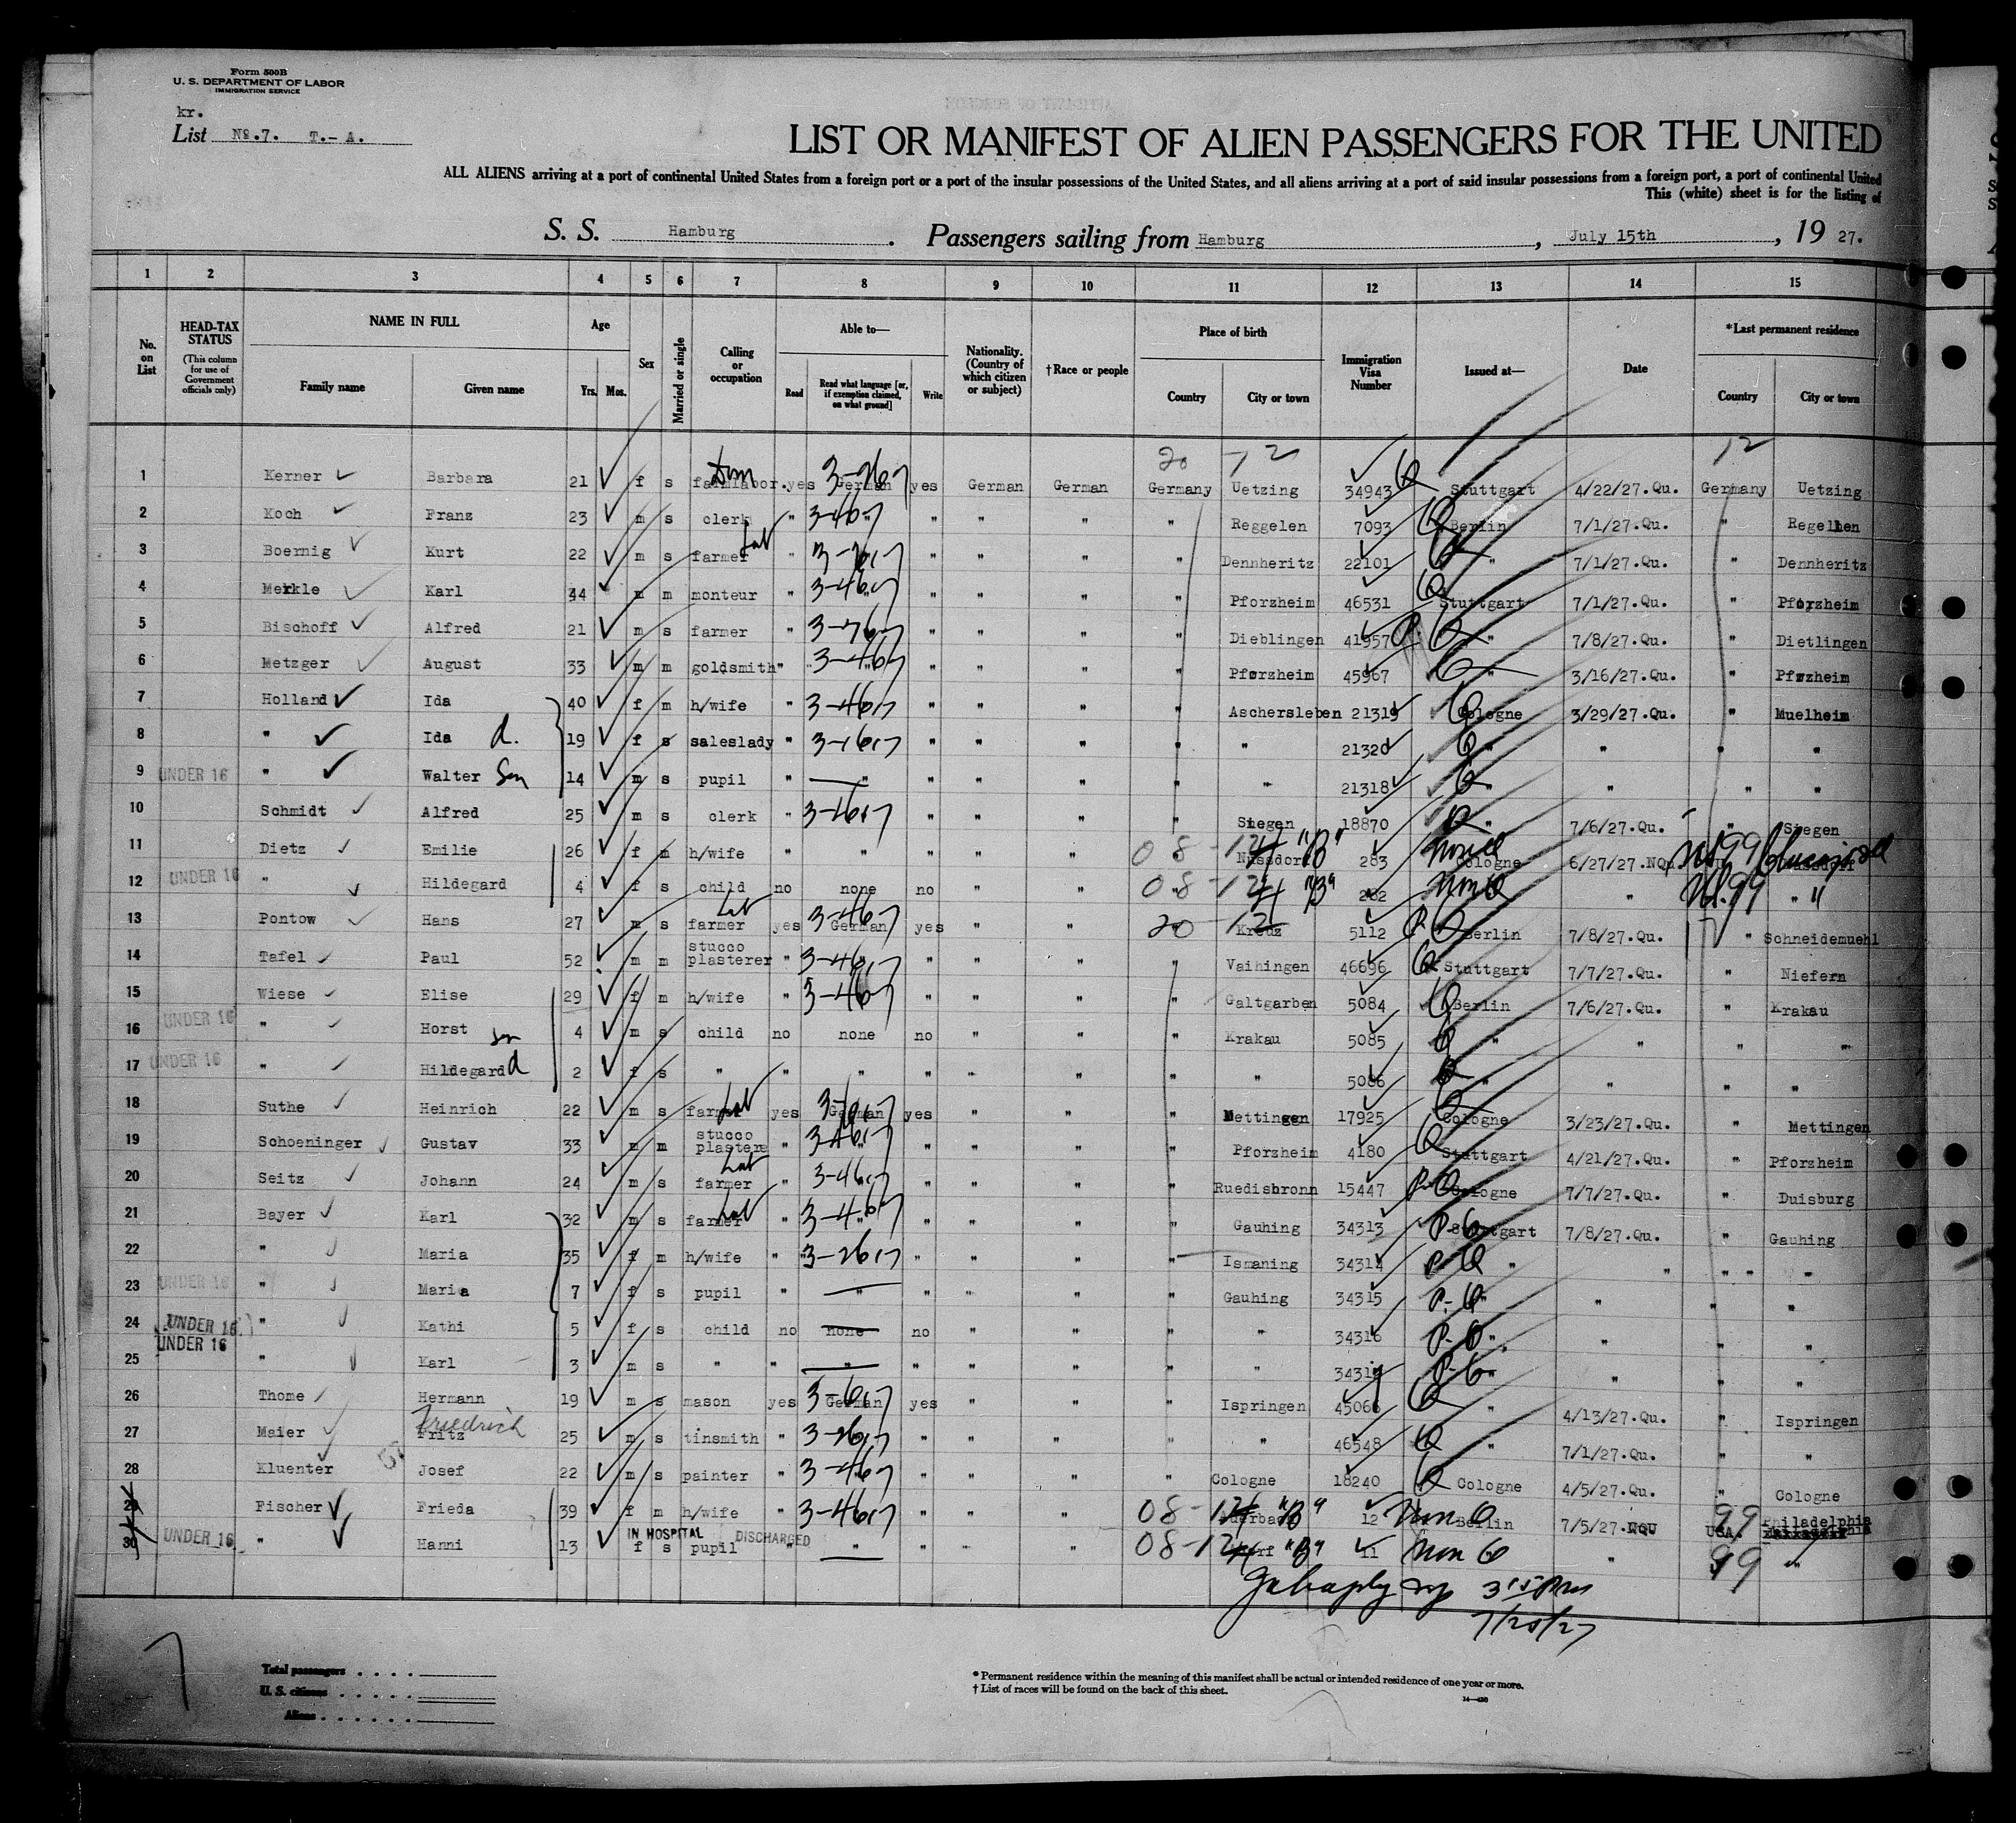 Form 500B
U. S. DEPARTMENT OF LABOR
IMMIGRATION SERVICE
kr.
List No.7. T.- A.
LIST OR MANIFEST OF ALIEN PASSENGERS FOR THE UNITED
ALL ALIENS arriving at a port of continental United States from a foreign port or a port of the insular possessions of the United States, and all aliens arriving at a port of said insular possessions from a foreign port, a port of continental United
This (white) sheet is for the listing of
S. S. Hamburg . Passengers sailing from Hamburg , July 15th , 19 27.
1 2 3 4 5 6 7 8 9 10 11 12 13 14 15
No. on List
HEAD-TAX STATUS (This column for use of Government officials only)
NAME IN FULL Family name Given name
Age Yrs. Mos.
Sex
Married or single
Calling or occupation
Able to— Read Read what language [or, if exemption claimed, on what ground] Write
Nationality. (Country of which citizen or subject)
†Race or people
Place of birth Country City or town
Immigration Visa Number
Issued at—
Date
*Last permanent residence Country City or town
20 12 12
1 Kerner Barbara 21 f s farmlabor. Dom yes German yes German German Germany Uetzing 34943 Q Stuttgart 4/22/27.Qu. Germany Uetzing
2 Koch Franz 23 m s clerk " " " " " " Reggelen 7093 Q Berlin 7/1/27.Qu. " Regellen
3 Boernig Kurt 22 m s farmer Lab " " " " " Dennheritz 22101 Q " 7/1/27.Qu. " Dennheritz
4 Merkle Karl 44 m m monteur " " " " " " Pforzheim 46531 Q Stuttgart 7/1/27.Qu. " Pforzheim
5 Bischoff Alfred 21 m s farmer " " " " " " Dieblingen 41957 Q " 7/8/27.Qu. " Dietlingen
6 Metzger August 33 m m goldsmith " " " " " " Pforzheim 45967 Q " 3/16/27.Qu. " Pforzheim
7 Holland Ida 40 f m h/wife " " " " " " Aschersleben 21319 Q Cologne 3/29/27.Qu. " Muelheim
8 " Ida d. 19 f s saleslady " " " " " " " 21320 Q " " " "
9 UNDER 16 " Walter Son 14 m s pupil " " " " " " " 21318 Q " " " "
10 Schmidt Alfred 25 m s clerk " " " " " Siegen 18870 Q " 7/6/27.Qu. " Siegen
11 Dietz Emilie 26 f m h/wife " " " " " 08-12 "B" Nussdorf 283 Non Q Cologne 6/27/27.NQu. 99
12 UNDER 16 " Hildegard 4 f s child no none no " " 08-12 "B" 282 Non Q " 99 "
13 Pontow Hans 27 m s farmer Lab yes German yes " " 20 12 Kreuz 5112 Q Berlin 7/8/27.Qu. " Schneidemuehl
14 Tafel Paul 52 m m stucco plasterer " " " " " " Vaihingen 46696 Q Stuttgart 7/7/27.Qu. " Niefern
15 Wiese Elise 29 f m h/wife " " " " " Galtgarben 5084 Q Berlin 7/6/27.Qu. " Krakau
16 UNDER 16 " Horst son 4 m s child no none no " " " Krakau 5085 Q " " " "
17 UNDER 16 " Hildegard d 2 f s " " " " " " " " 5086 Q " " " "
18 Suthe Heinrich 22 m s farmer Lab yes German yes " " " Mettingen 17925 Q Cologne 3/23/27.Qu. " Mettingen
19 Schoeninger Gustav 33 m m stucco plastere " " " " " " Pforzheim 4180 Q Stuttgart 4/21/27.Qu. " Pforzheim
20 Seitz Johann 24 m s farmer Lab " " " " " Ruedisbronn 15447 P-Q Cologne 7/7/27.Qu. " Duisburg
21 Bayer Karl 32 m s farmer Lab " " " " " " Gauhing 34313 P-Q Stuttgart 7/8/27.Qu. " Gauhing
22 " Maria 35 f m h/wife " " " " " " Ismaning 34314 P-Q " " " "
23 UNDER 16 " Maria 7 f s pupil " " " " " " Gauhing 34315 P-Q " " " "
24 UNDER 16 " Kathi 5 f s child no none no " " " " 34316 P-Q " " " "
25 UNDER 16 " Karl 3 m s " " " " " " " " P-Q " " " "
26 Thome Hermann 19 m s mason yes German yes " " " Ispringen 45066 Q " 4/13/27.Qu. " Ispringen
27 Maier Fritz Friedrich 25 m s tinsmith " " " " " " 46548 Q " 7/1/27.Qu. " "
28 Kluenter Josef 22 m s painter " " " " " Cologne 18240 Q Cologne 4/5/27.Qu. " Cologne
29 Fischer Frieda 39 f m h/wife " " " " " 08-12 "B" 12 Non Q Berlin 7/5/27.NQU USA. 99 Philadelphia
30 UNDER 16 " Hanni 13 f s pupil IN HOSPITAL DISCHARGED " " " " 08-12 "B" 11 Non Q " 99 "
3 15 PM
7/25/27
7
Total passengers . . . .
U. S. citizens . . . . .
Aliens . . . . . .
* Permanent residence within the meaning of this manifest shall be actual or intended residence of one year or more.
† List of races will be found on the back of this sheet.
14—430